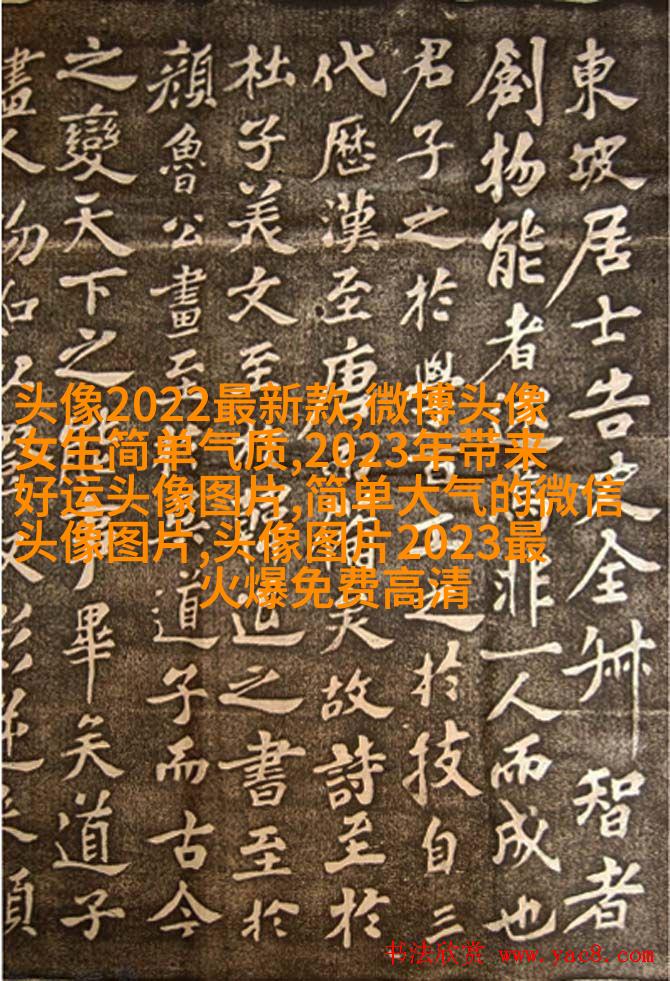 東坡居士告史全叔智者
創物能者述焉非一人而成也
君子之於學百工之於技自三
代歷漢至唐而備矣故詩至於
杜子美文至於韓退之書至於
顏魯公畫至於吳道子而古今
之變天下之能事畢矣道子
头像2022最新款,微博头像
女生简单气质,2023年带来
好运头像图片,简单大气的微信
头像图片,头像图片2023最
火爆免费高清
书法欣赏 www.yac8.com